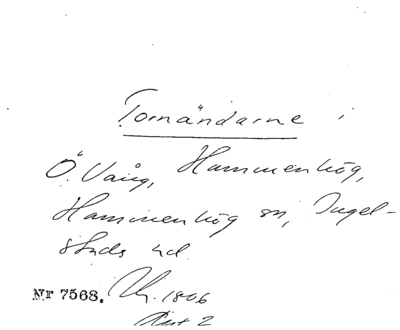 Tornändarne i
Ö. Vång, Hammenhög,
Hammenhög sn, Ingel-
stads hd.
Nr 7568. 1806